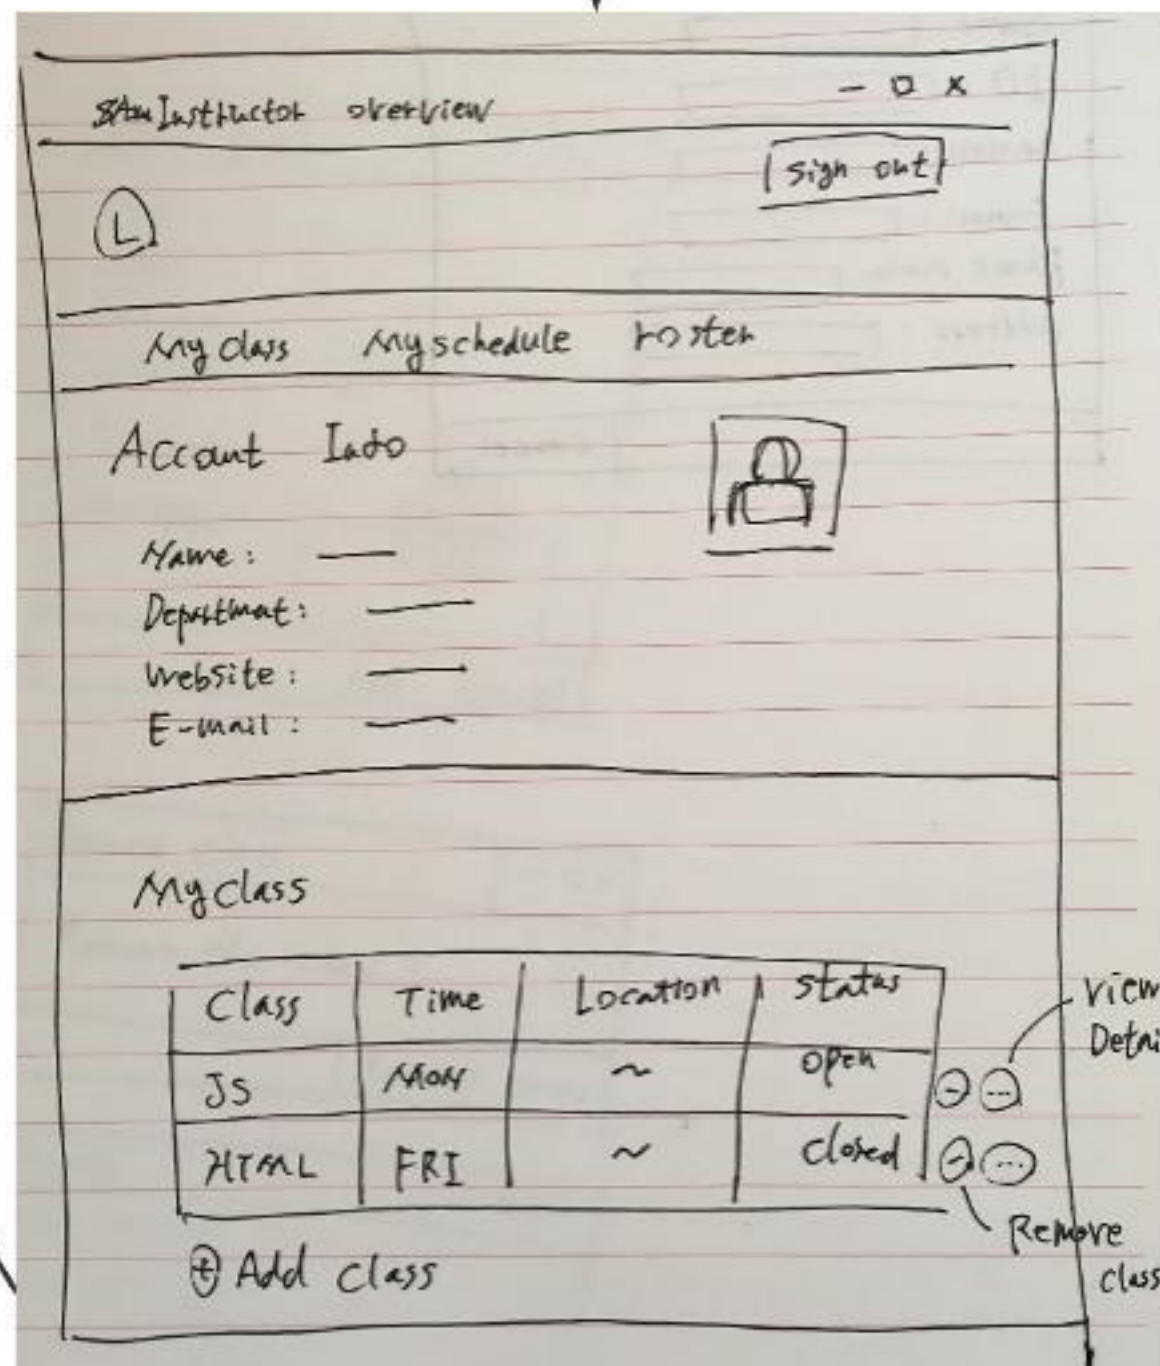 Instructor overview
- □ x
Sign out
L
My class My schedule roster
Account Info
Name :
Department :
Website :
E-mail :
My class
Class Time Location Status
JS MON ~ open
HTML FRI ~ closed
View
Detai
Remove
Class
+ Add class